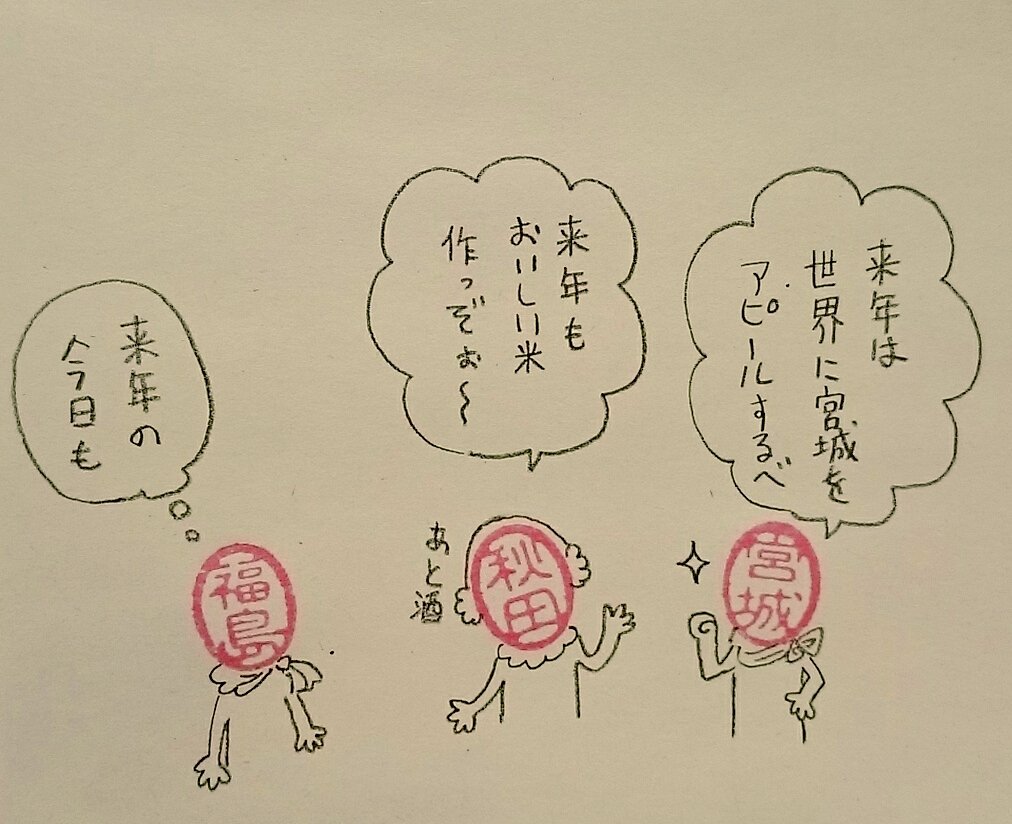 来年は
世界に宮城を
アピールするべ
宮城
来年も
おいしい米
作っぞぉ～
秋田
あと酒
来年の
今日も
福島